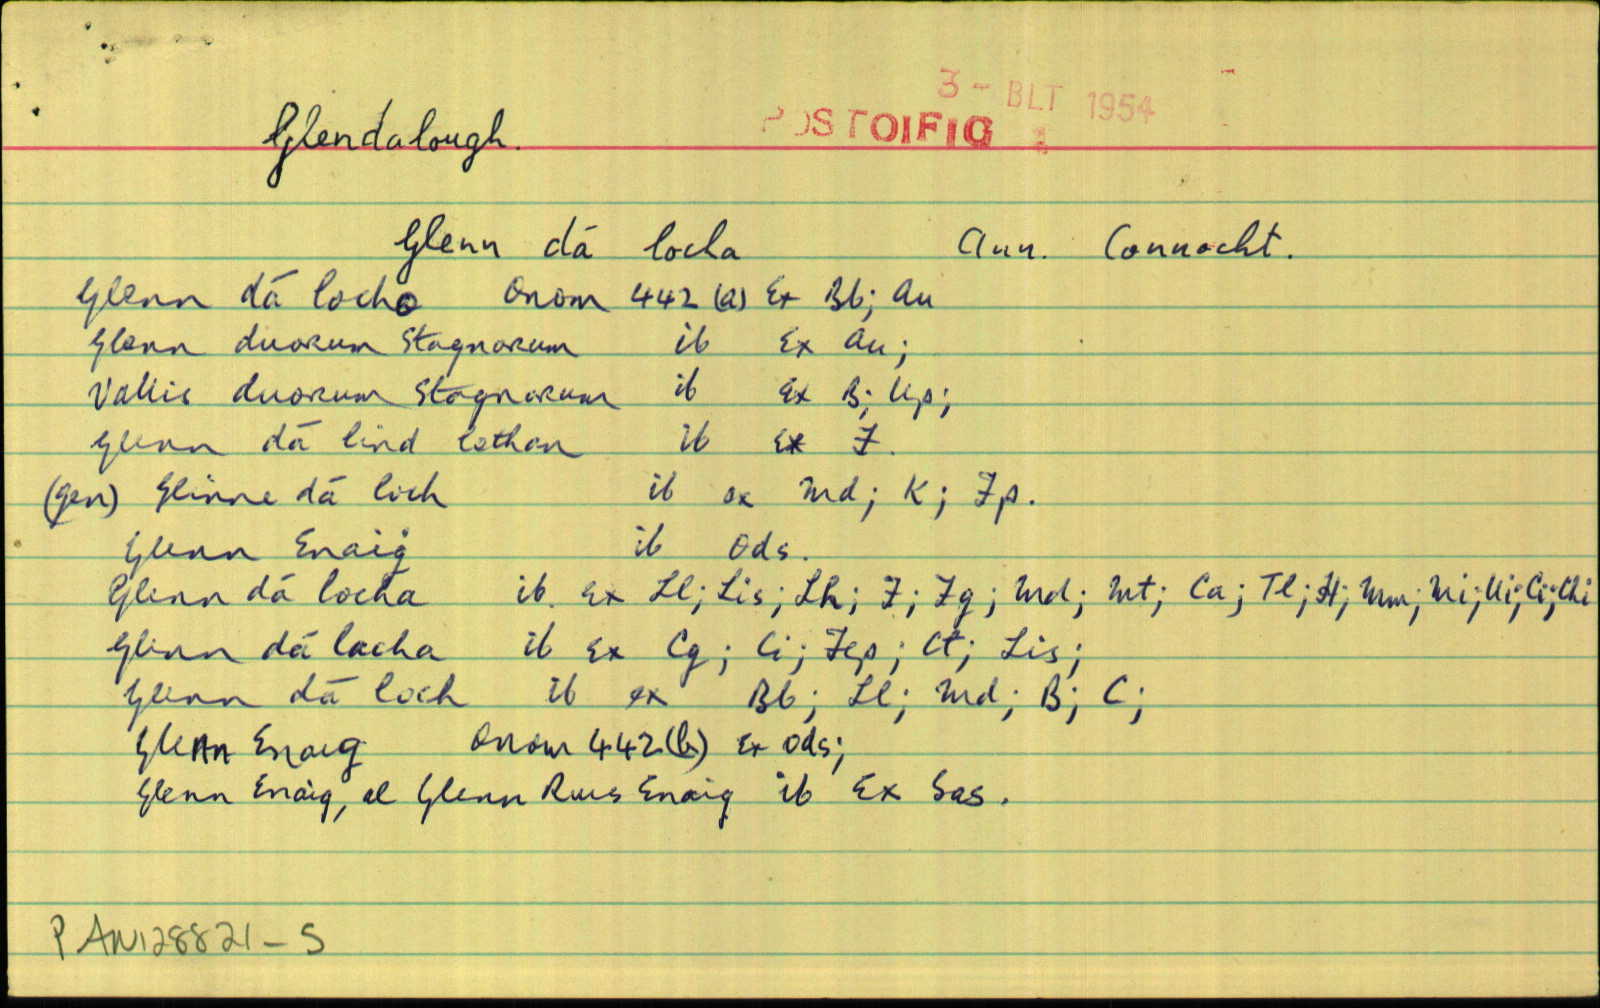 3 - BLT 1954
POSTOIFIG
Glendalough.
Glenn dá locha Ann. Connacht.
Glenn dá locho Onom 442 (a) Ex Bb; Au
Glenn duorum Stagnorum ib Ex Au;
Vallis duorum Stagnorum ib Ex B; Up;
Glenn dá lind lethan ib Ex F.
(gen) Glinne dá loch ib ex Md; K; Fp.
Glenn Enaig ib Ods.
Glenn dá locha ib. Ex Ll; Lis; Lh; F; Fg; Md; Mt; Ca; Tl; H; Mm; Mi; Ui; Ci; Chi
Glinn dá lacha ib Ex Cg; Ci; Fep; Ct; Lis;
Glenn dá loch ib ex Bb; Ll; Md; B; C;
Glenn Enaig Onom 442 (b) Ex Ods;
Glenn Enaig, al Glenn Ruis Enaig ib Ex Sas.
PAN128821-S